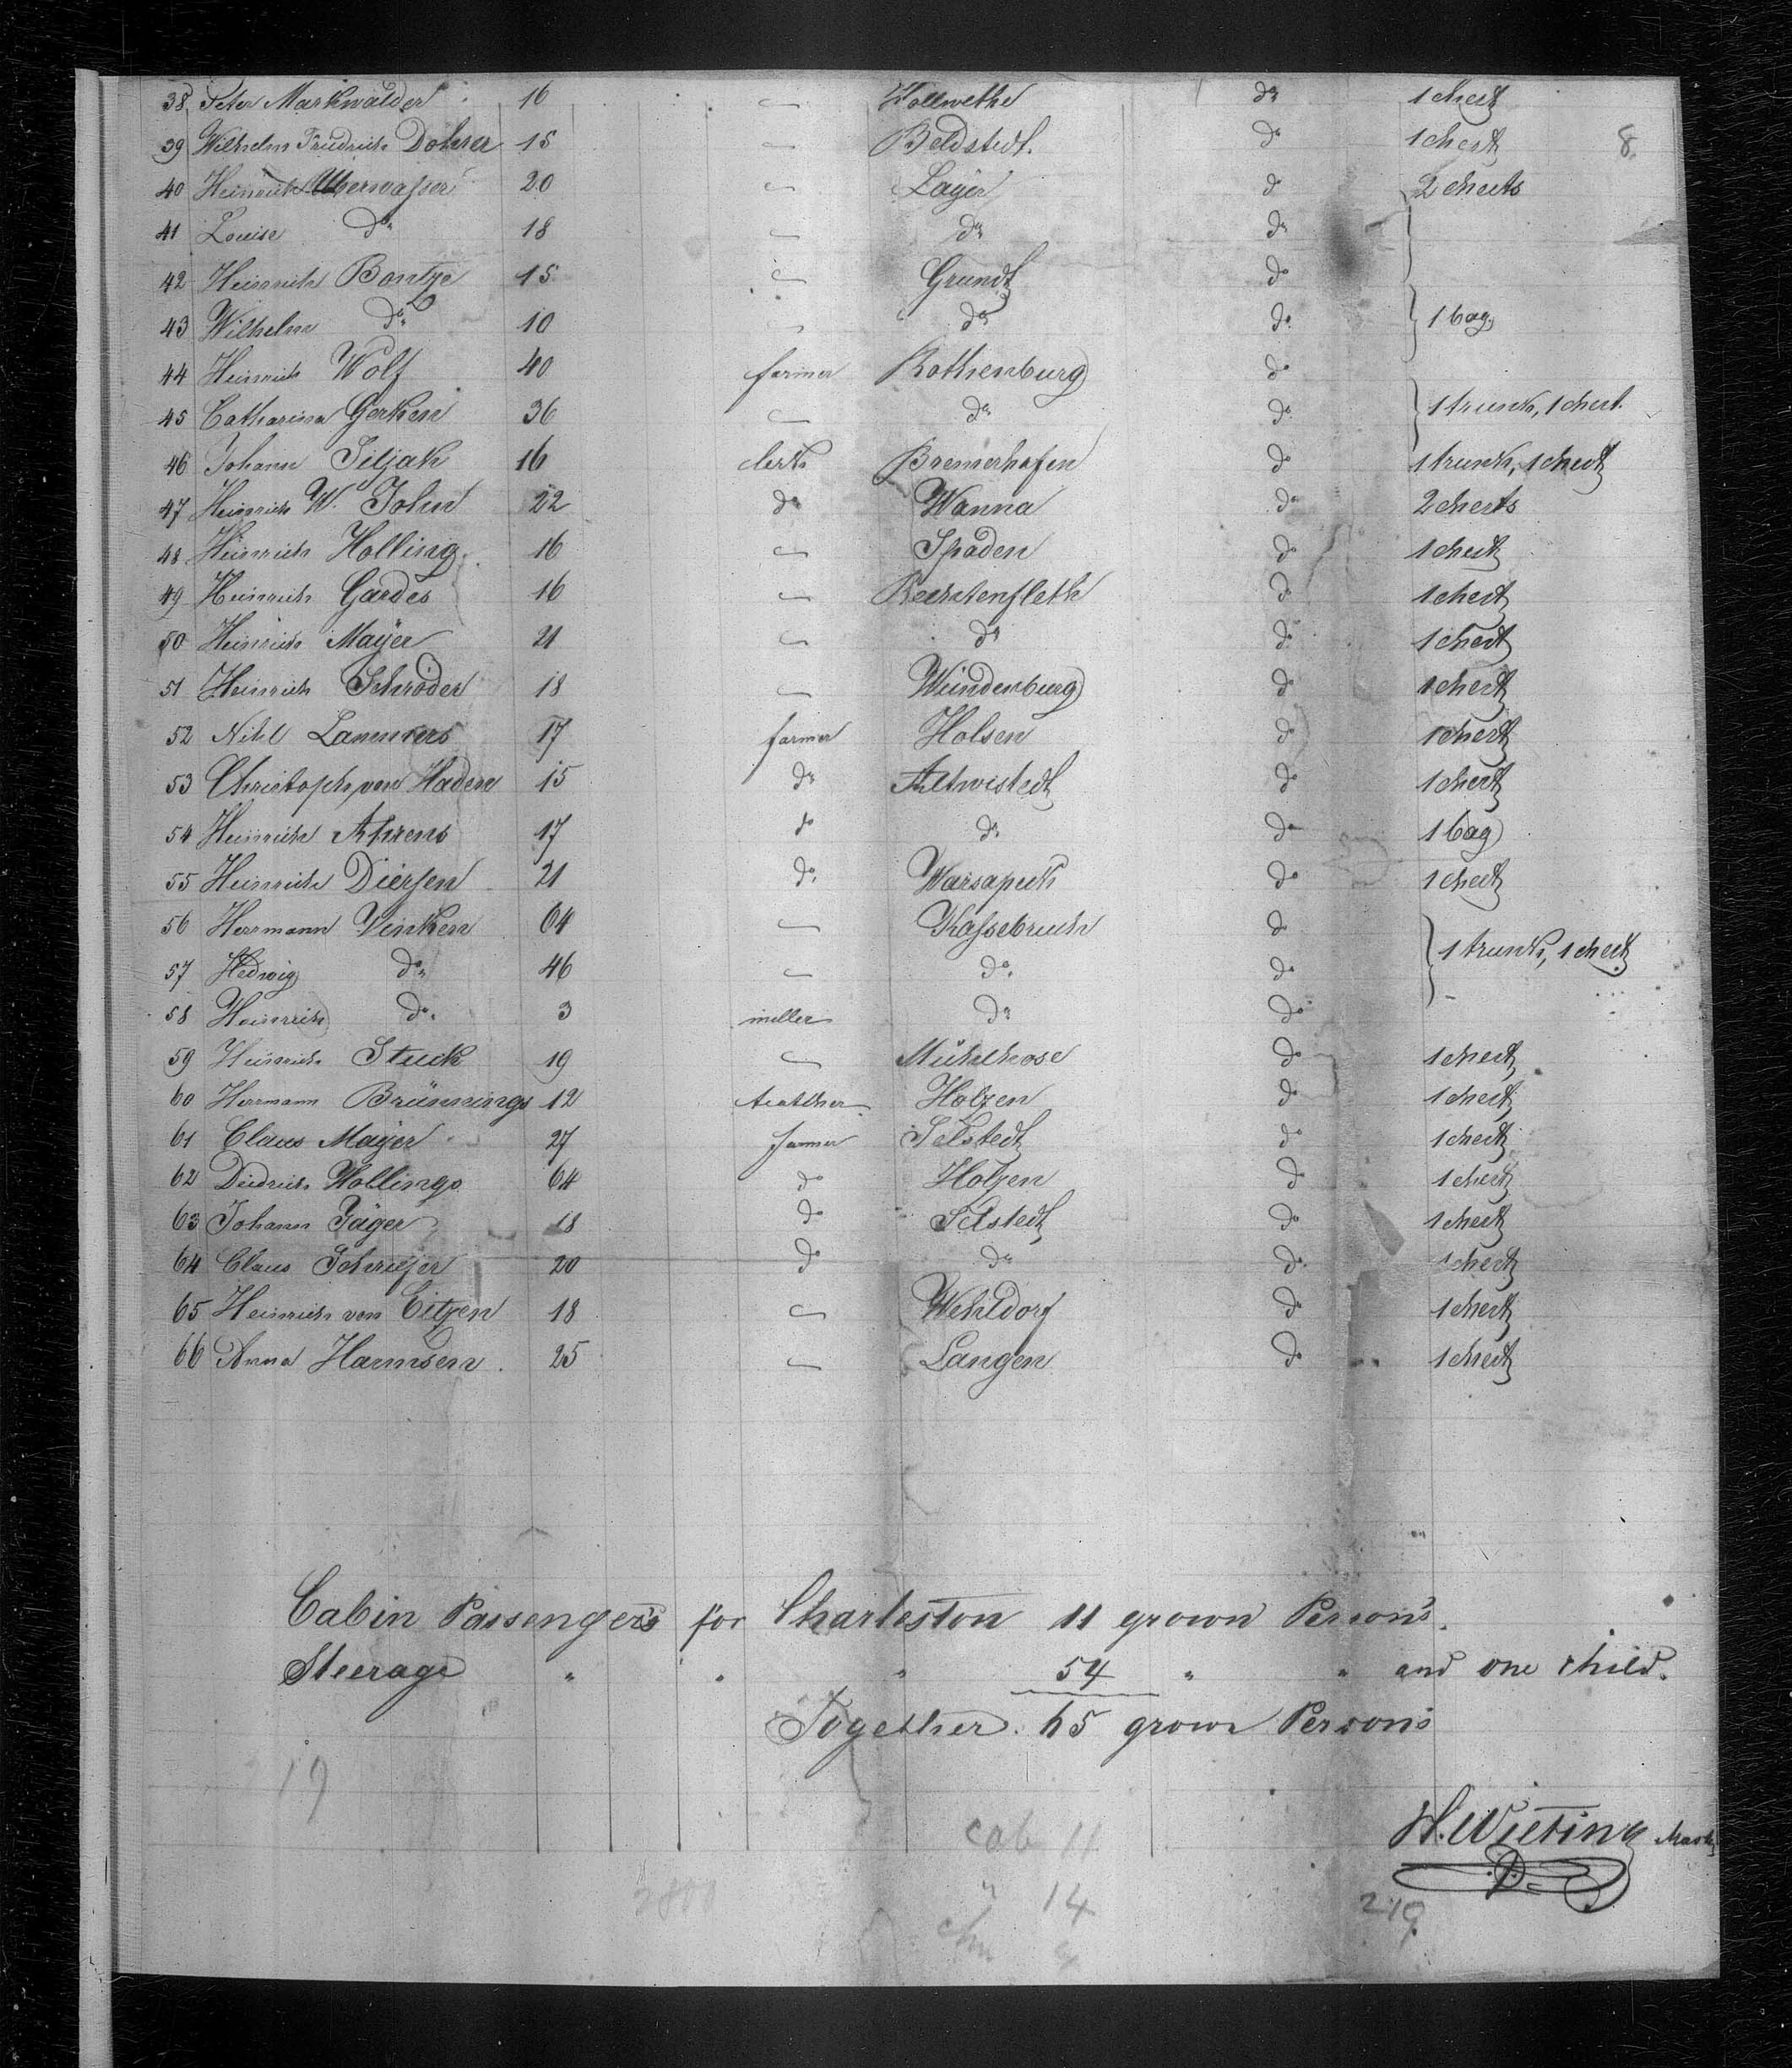 38 Peter Markwalder 16 — Wollwethe do 1 chest
39 Wilhelm Friedrich Dohrer 15 — Beldstedt. do 1 chest 8.
40 Heinrich Uberwasser 20 — Layer do 2 chests
41 Louise do 18 — do do
42 Heinrich Bontze 15 — Grundt do
43 Wilhelm do 10 — do do 1 bag
44 Heinrich Wolf 40 farmer Rothenburg do
45 Catharina Gerken 36 — do do 1 trunk, 1 chest.
46 Johann Siljak 16 clerk Bremerhafen do 1 trunk, 1 chest
47 Heinrich W. John 22 do Wanna do 2 chests
48 Heinrich Holling 16 — Spaden do 1 chest
49 Heinrich Gardes 16 — Rechtenfleth do 1 chest
50 Heinrich Mayer 21 — do do 1 chest
51 Heinrich Schröder 18 — Weindenburg do 1 chest
52 Lammers 17 farmer Holsen do 1 chest
53 Christoph von Haden 15 do Altwistedt do 1 chest
54 Heinrich Ahrens 17 do do do 1 bag
55 Heinrich Diersen 21 do Warsapeck do 1 chest
56 Herrmann Vinken 64 — Kassebruch do
57 Hedwig do 46 — do do 1 trunk, 1 chest
58 Heinrich do 3 miller do do
59 Heinrich Stuck 19 — do 1 chest
60 Herrmann Brünnings 12 Holzen do 1 chest
61 Claus Mayer 27 farmer Selstedt do 1 chest
62 Diedrich Wollings 64 do Holzen do 1 chest
63 Johann Jäger 18 do Selstedt do 1 chest
64 Claus Schriefer 20 do do do 1 chest
65 Heinrich von Eitzen 18 — Wehldorf do 1 chest
66 Anna Harmsen 25 — Langen do 1 chest
Cabin Passengers for Charleston 11 grown Persons.
Steerage " " " 54 " " and one child.
Together. 65 grown Persons
19
H. Wieting Master
cab 11
2800 " 14
219